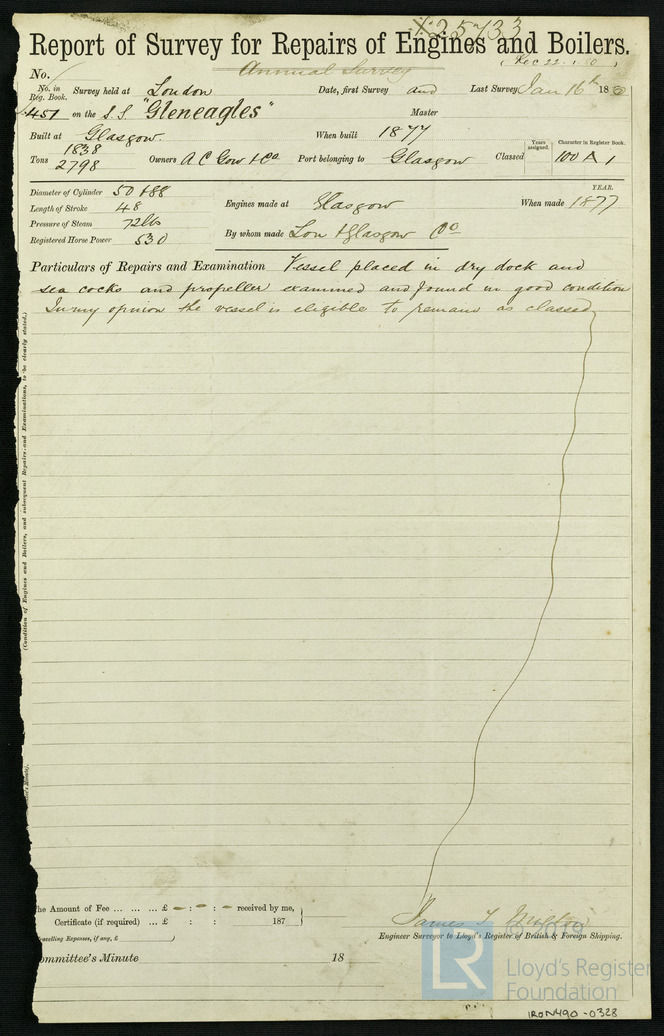 25733
Report of Survey for Repairs of Engines and Boilers.
Annual Survey
(Rec 22.1.80)
No.
No. in Reg. Book. Survey held at London Date, first Survey and Last Survey Jan 16th 1880
451 on the S.S "Gleneagles" Master
Built at Glasgow. When built 1877
Tons 1838 2798 Owners A C Gow & Co Port belonging to Glasgow Classed Years assigned. Character in Register Book. 100 A 1
Diameter of Cylinder 50 & 88
Length of Stroke 48
Pressure of Steam 72 lbs
Registered Horse Power 530
Engines made at Glasgow When made YEAR. 1877
By whom made Lon & Glasgow Co
Particulars of Repairs and Examination Vessel placed in dry dock and
sea cocks and propeller examined and found in good condition
In my opinion the vessel is eligible to remain as classed
(Condition of Engines and Boilers, and subsequent Repairs and Examinations, to be clearly stated.)
he Amount of Fee ... ... ... £ – : – : – received by me,
Certificate (if required) ... £ : : 187
ravelling Expenses, if any, £ )
James T Milton
Engineer Surveyor to Lloyd's Register of British & Foreign Shipping.
ommittee's Minute 18
© 2019
LR
Lloyd's Register
Foundation
IRON490-0328